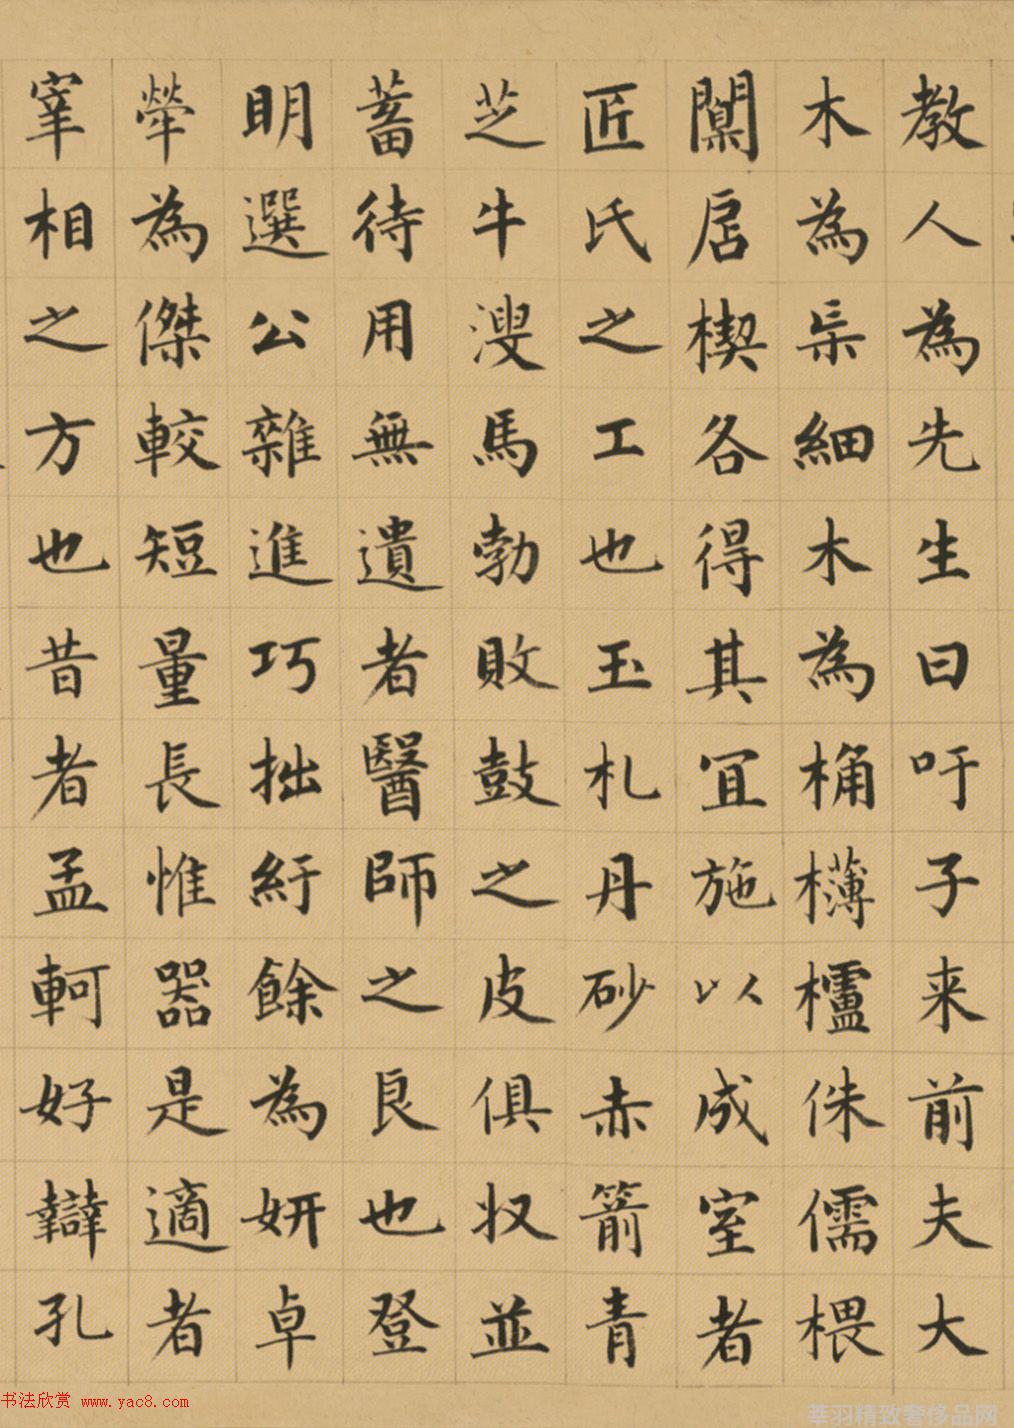 教人為先生曰吁子来前夫大
木為杗細木為桷欂櫨侏儒椳
闑扂楔各得其宜施以成室者
匠氏之工也玉札丹砂赤箭青
芝牛溲馬勃敗鼓之皮俱收並
蓄待用無遺者醫師之良也登
明選公雜進巧拙紆餘為妍卓
犖為傑較短量長惟器是適者
宰相之方也昔者孟軻好辯孔
书法欣赏 www.yac8.com
莘羽精致奢侈品网